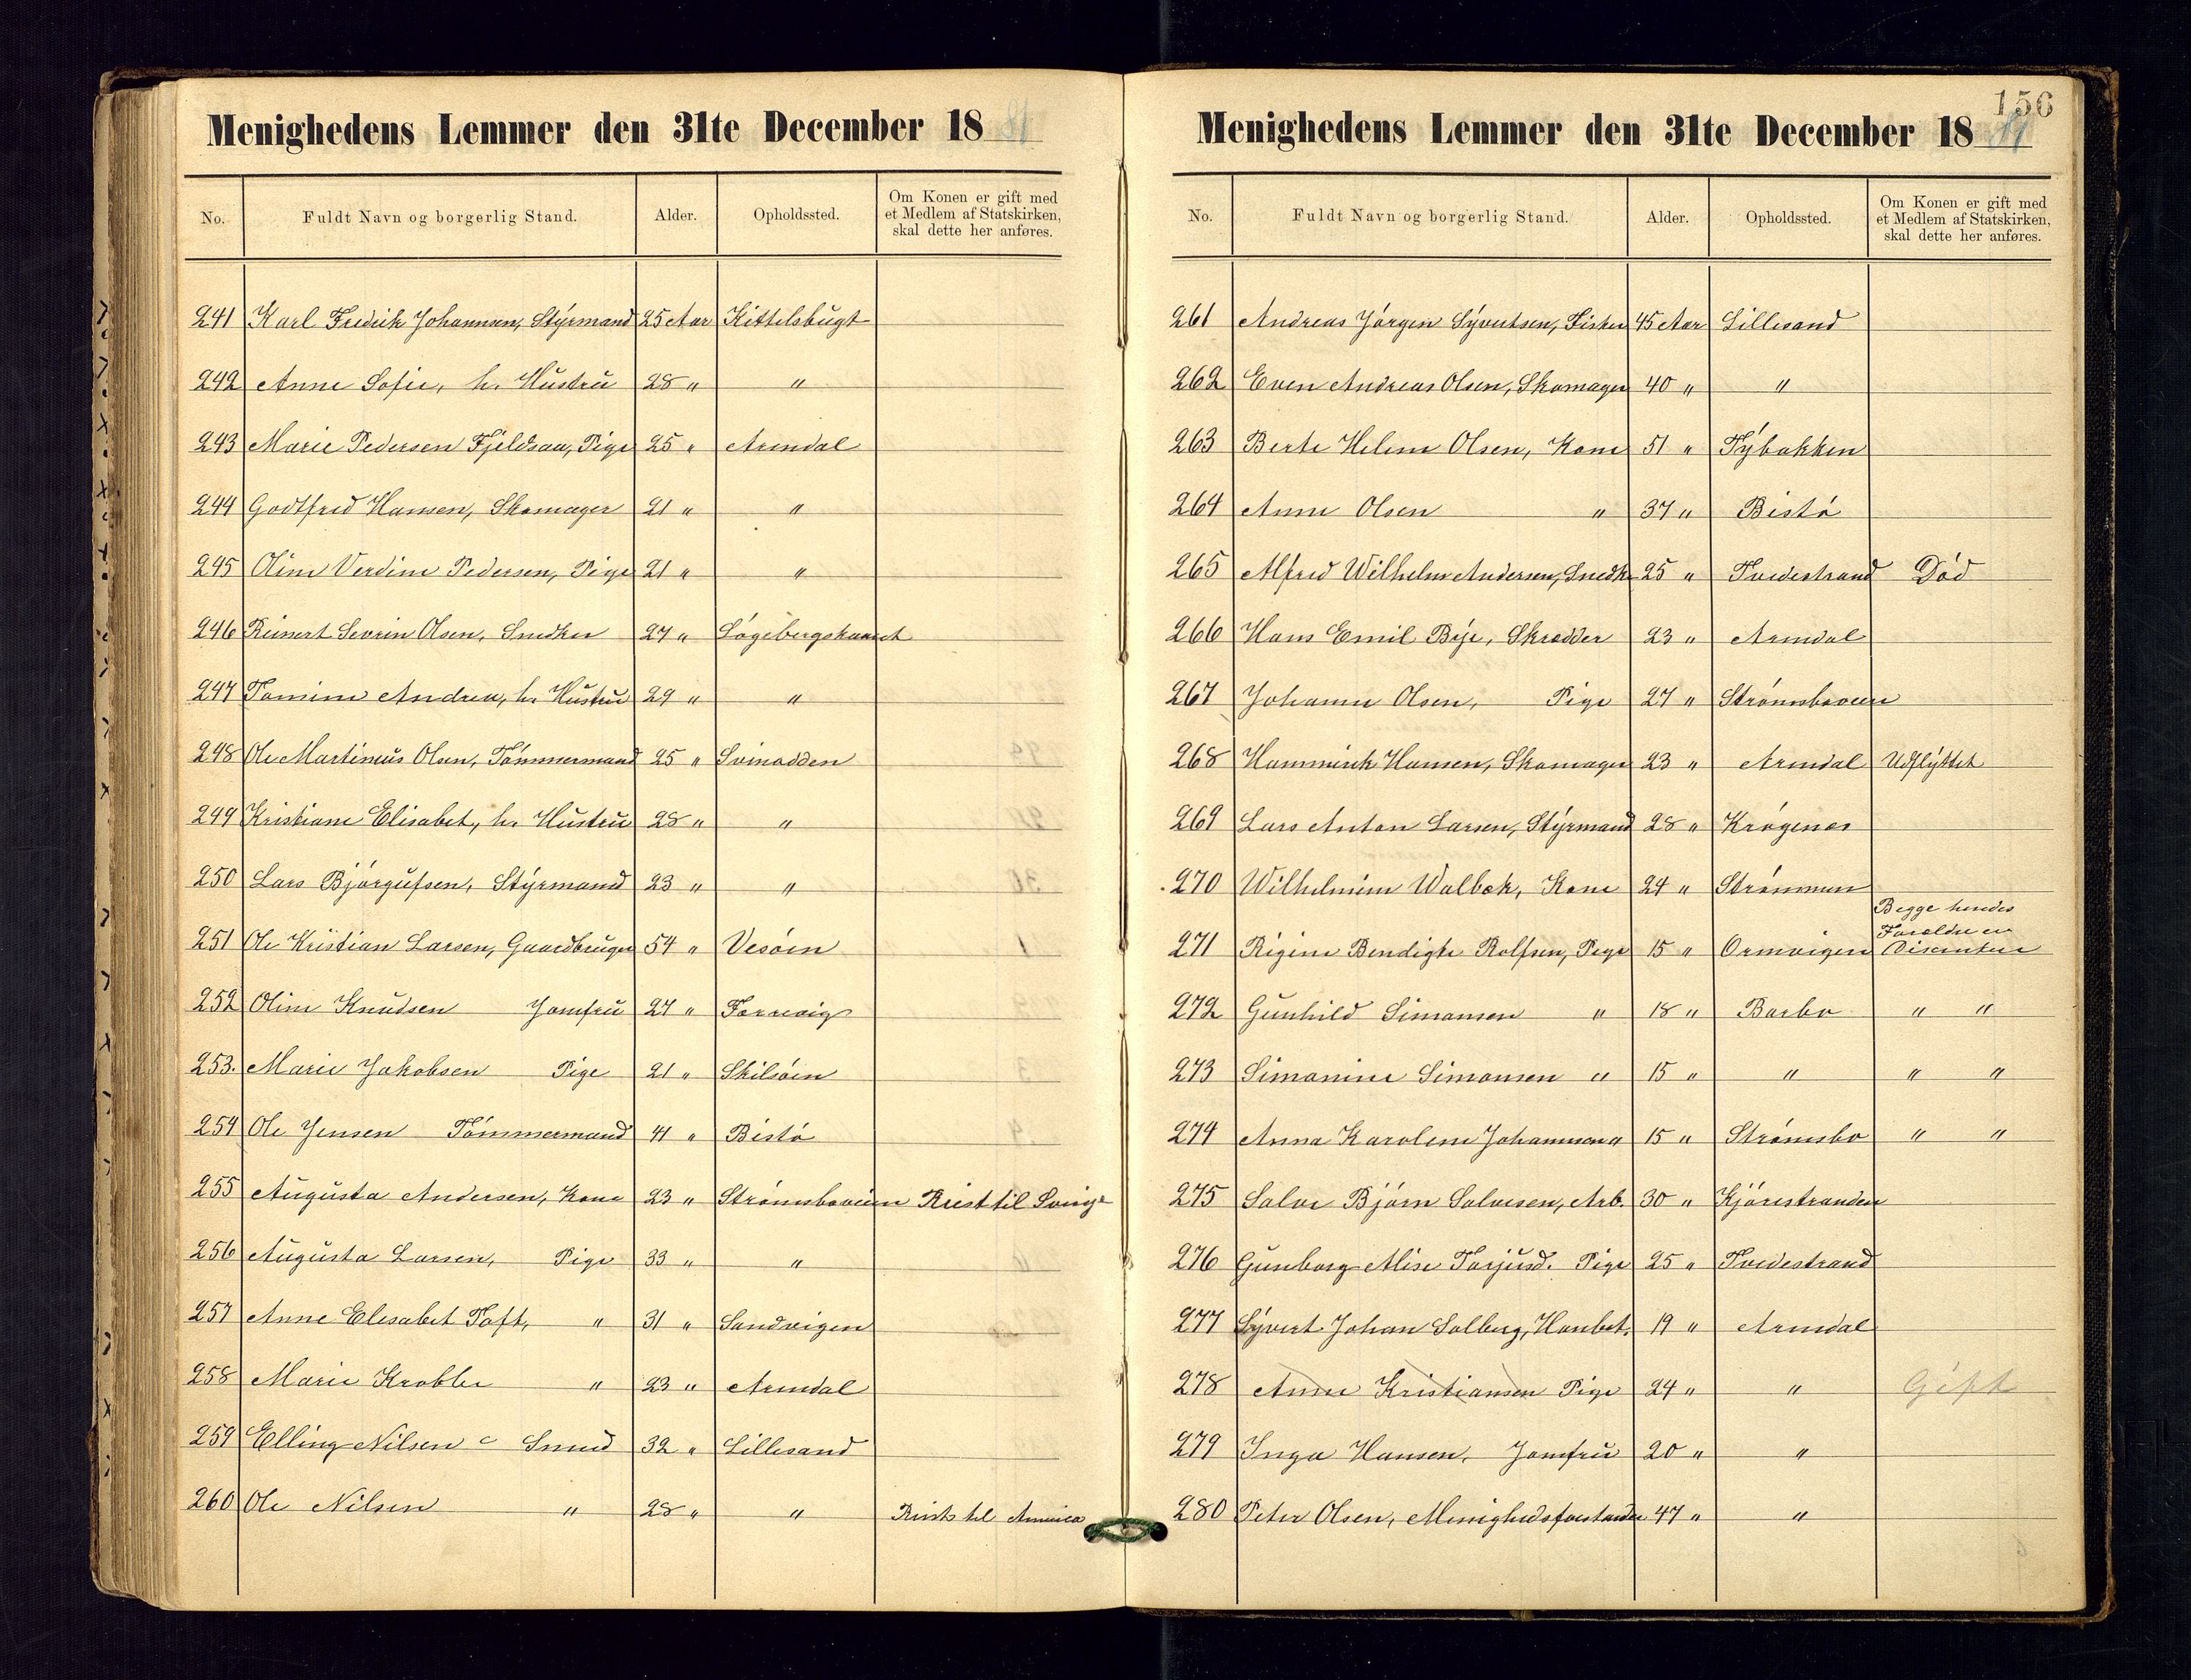 Menighedens Lemmer den 31te December 18
No. Fuldt Navn og borgerlig Stand. Alder. Opholdssted. Om Konen er gift med
et Medlem af Statskirken,
skal dette her anføres.
241 Karl Fredrik Johannsen, Stýrmand 25 Aar Kittelsbugt
242 Anne Sofie, h. Hustru 28 " "
243 Marie Pedersen Fjeldsaa, Pige 25 " Arendal
244 Godtfred Hansen, Skomager 21 " "
245 Oline Verdine Pedersen, Pige 21 " "
246 Reinert Sevrin Olsen, Snedker 27 "
247 Tomine Andrea, h. Hustru 29 " "
248 Ole Martinius Olsen, Tömmermand 25 " Svinodden
249 Kristiane Elisabet, h. Hustru 28 " "
250 Lars Bjørgufsen, Stýrmand 23 " "
251 Ole Kristian Larsen, Gaardbruger 54 " Vesøen
252 Oline Knudsen Jomfru 27 "
253. Marie Jakobsen Pige 21 " Skilsøen
254 Ole Jensen Tömmermand 41 " Bistø
255 Augusta Andersen, Kone 23 " Strømsboveien Reist til Sverige
256 Augusta Larsen, Pige 33 " "
257 Anne Elesabet Toft, " 31 " Sandvigen
258 Marie Krabbe " 23 " Arendal
259 Elling Nilsen Smed 32 " Lillesand
260 Ole Nilsen " 28 " " Reist til America
156
Menighedens Lemmer den 31te December 18
No. Fuldt Navn og borgerlig Stand. Alder. Opholdssted. Om Konen er gift med
et Medlem af Statskirken,
skal dette her anføres.
261 Andreas Jørgen Sývertsen, Fisker 45 Aar Lillesand
262 Even Andreas Olsen, Skomager 40 " "
263 Berte Helene Olsen, Kone 51 " Týbakken
264 Anne Olsen " 37 " Bistø
265 Alfred Wilhelm Andersen, Snedk 25 " Tvedestrand Død
266 Hans Emil Býe, Skrædder 23 " Arendal
267 Johanne Olsen, Pige 27 " Strømsboveien
268 Hansen, Skomager 23 " Arendal Udflýttet
269 Lars Anton Larsen, Stýrmand 28 " Krøgenes
270 Wilhelmine Walbek, Kone 24 " Strømmen
271 Rigine Bendigte Rolfsen, Pige 15 " Ormvigen Begge hendes
Forældre er
Disenter
272 Gunhild Simonsen " 18 " Barbo " "
273 Simonine Simonsen " 15 " " " "
274 Anna Karoline Johannsen " 15 " Strømsbo " "
275 Salve Bjørn Salvesen, Arb. 30 " Kjørestranden
276 Gunborg Alise Torjusd. Pige 25 " Tvedestrand
277 Sývert Johan Solberg, Hanbet. 19 " Arendal
278 Anne Kristiansen Pige 24 " " Gift
279 Inga Hansen, Jomfru 20 " "
280 Peter Olsen, Menighedsforstander 47 " "